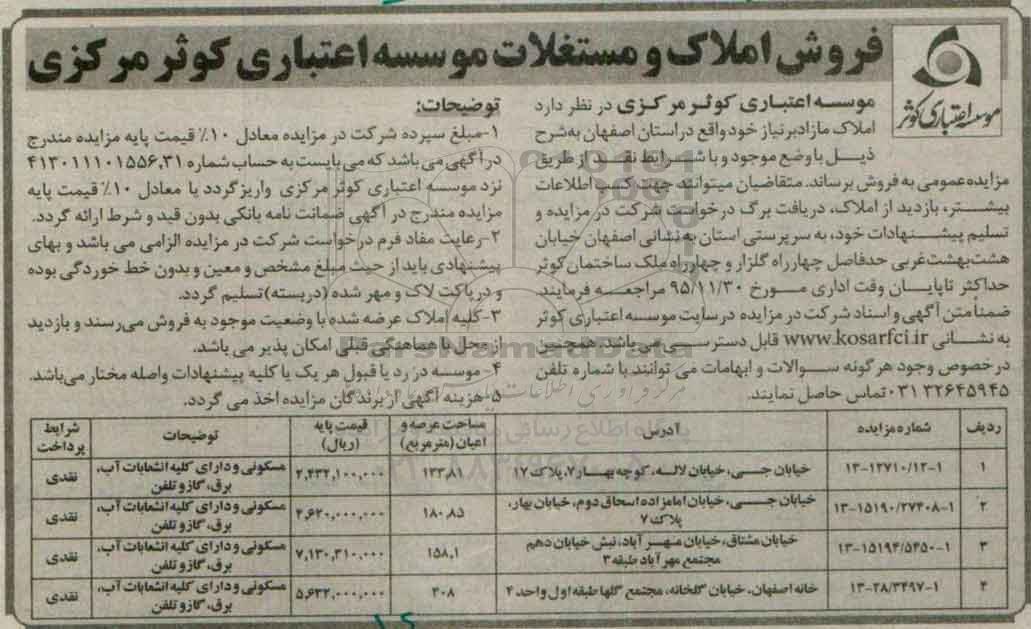 فروش املاک و مستغلات موسسه اعتباری کوثر مرکزی
موسسه اعتباری کوثر
موسسه اعتباری کوثر مرکزی در نظر دارد
املاک مازاد بر نیاز خود واقع در استان اصفهان به شرح
ذیل با وضع موجود و با شرایط نقد از طریق
مزایده عمومی به فروش برساند. متقاضیان میتوانند جهت کسب اطلاعات
بیشتر، بازدید از املاک، دریافت برگ درخواست شرکت در مزایده و
تسلیم پیشنهادات خود، به سرپرستی استان به نشانی اصفهان خیابان
هشت بهشت غربی حدفاصل چهارراه گلزار و چهارراه ملک ساختمان کوثر
حداکثر تا پایان وقت اداری مورخ ۹۵/۱۱/۳۰ مراجعه فرمایند.
ضمناً متن آگهی و اسناد شرکت در مزایده در سایت موسسه اعتباری کوثر
به نشانی www.kosarfci.ir قابل دسترسی می باشد. همچنین
در خصوص وجود هر گونه سوالات و ابهامات می توانند با شماره تلفن
۰۳۱۳۲۶۴۵۹۴۵ تماس حاصل نمایند.
توضیحات:
۱-مبلغ سپرده شرکت در مزایده معادل ۱۰٪ قیمت پایه مزایده مندرج
در آگهی می باشد که می بایست به حساب شماره ۴۱۳۰۱۱۱۰۱۵۵۶,۳۱
نزد موسسه اعتباری کوثر مرکزی واریز گردد یا معادل ۱۰٪ قیمت پایه
مزایده مندرج در آگهی ضمانت نامه بانکی بدون قید و شرط ارائه گردد.
۲-رعایت مفاد فرم درخواست شرکت در مزایده الزامی می باشد و بهای
پیشنهادی باید از حیث مبلغ مشخص و معین و بدون خط خوردگی بوده
و در پاکت لاک و مهر شده (دربسته) تسلیم گردد.
۳-کلیه املاک عرضه شده با وضعیت موجود به فروش می رسند و بازدید
از محل با هماهنگی قبلی امکان پذیر می باشد.
۴-موسسه در رد یا قبول هر یک یا کلیه پیشنهادات واصله مختار می باشد.
۵-هزینه آگهی از برندگان مزایده اخذ می گردد.
ردیف شماره مزایده آدرس مساحت عرصه و اعیان (متر مربع) قیمت پایه (ریال) توضیحات شرایط پرداخت
۱ ۱۳-۱۲۷۱۰/۱۲-۱ خیابان جی، خیابان لاله، کوچه بهار ۷، پلاک ۱۷ ۱۳۳,۸۱ ۲,۴۳۲,۱۰۰,۰۰۰ مسکونی و دارای کلیه انشعابات آب، برق، گاز و تلفن نقدی
۲ ۱۳-۱۵۱۹۰/۲۷۴۰۸-۱ خیابان جی، خیابان امامزاده اسحاق دوم، خیابان بهار، پلاک ۷ ۱۸۰,۸۵ ۴,۶۲۰,۰۰۰,۰۰۰ مسکونی و دارای کلیه انشعابات آب، برق، گاز و تلفن نقدی
۳ ۱۳-۱۵۱۹۴/۵۴۵۰-۱ خیابان مشتاق، خیابان مهر آباد، نبش خیابان دهم مجتمع مهر آباد طبقه ۳ ۱۵۸,۱ ۷,۱۳۰,۳۱۰,۰۰۰ مسکونی و دارای کلیه انشعابات آب، برق، گاز و تلفن نقدی
۴ ۱۳-۲۸/۳۴۹۷-۱ خانه اصفهان، خیابان گلخانه، مجتمع گلها طبقه اول واحد ۴ ۲۰۸ ۵,۶۳۲,۰۰۰,۰۰۰ مسکونی و دارای کلیه انشعابات آب، برق، گاز و تلفن نقدی
ParsNamadData